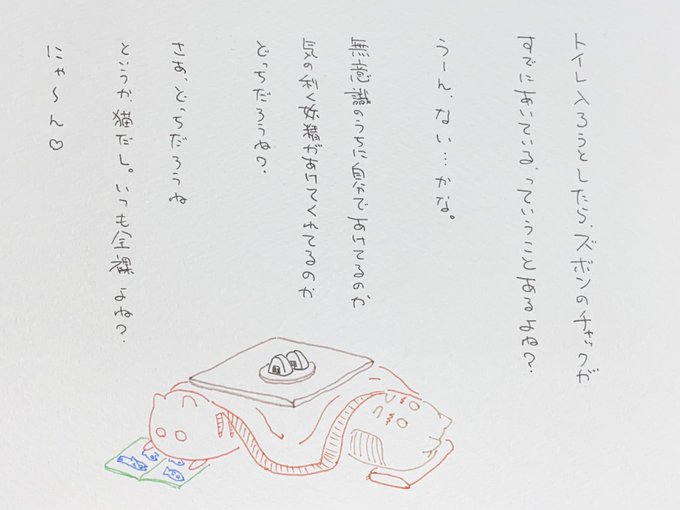 トイレ入ろうとしたら、ズボンのチャックが
すでにあいている、っていうことあるよね?
うーん、ない…かな。
無意識のうちに自分であけてるのか
気の利く妖精があけてくれてるのか
どっちだろうね?
さあ、どっちだろうね
というか、猫だし。いつも全裸よね?
にゃ〜ん♡